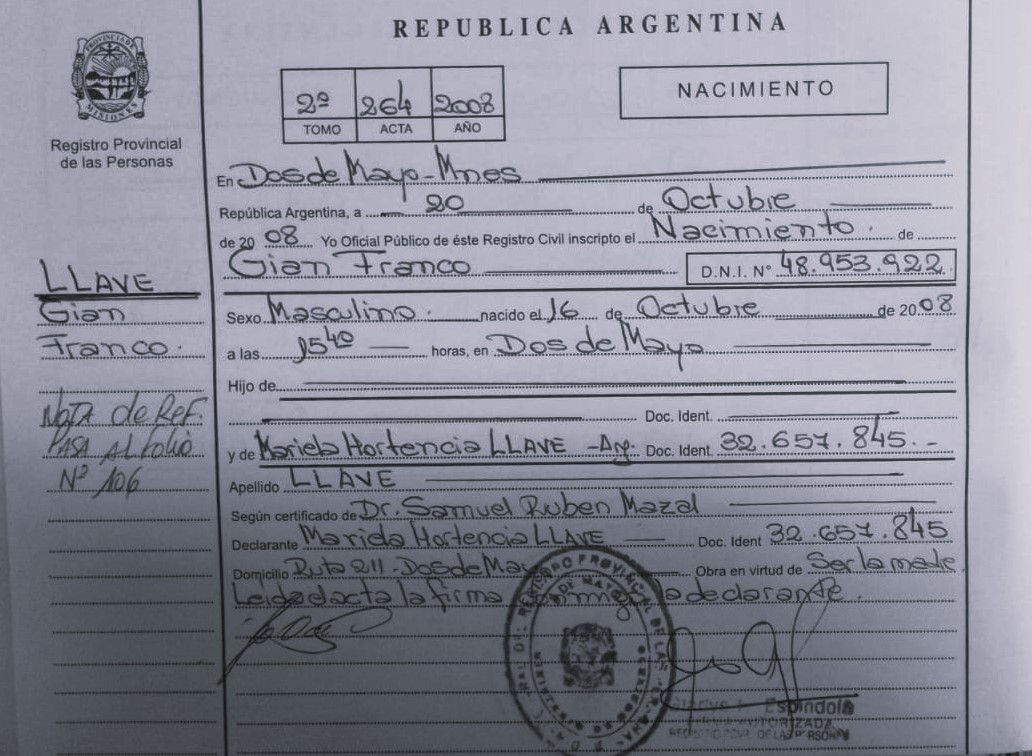 REPUBLICA ARGENTINA
PROVINCIA DE MISIONES
Registro Provincial
de las Personas
2º 264 2008
TOMO ACTA AÑO
NACIMIENTO
En Dos de Mayo - Mnes
República Argentina, a 20 de Octubre
de 2008 Yo Oficial Público de éste Registro Civil inscripto el Nacimiento . de
Gian Franco D.N.I. Nº 48.953.922
LLAVE
Gian
Franco.
Sexo Masculino . nacido el 16 de Octubre de 2008
a las 15 40 horas, en Dos de Mayo
Hijo de
Doc. Ident.
NOTA de Ref.
PASA AL folio
Nº 106
y de Mariela Hortencia LLAVE - Arg. Doc. Ident. 32.657.845.-
Apellido LLAVE
Según certificado de Dr. Samuel Ruben Mazal
Declarante Mariela Hortencia LLAVE Doc. Ident 32.657.845
Domicilio Ruta 211 - Dos de May Obra en virtud de Ser la madre
Leida el acta la firma la declarante.
REGISTRO PROVINCIAL DE LAS
Espindola
AUTORIZADA
DE LAS PERSONAS